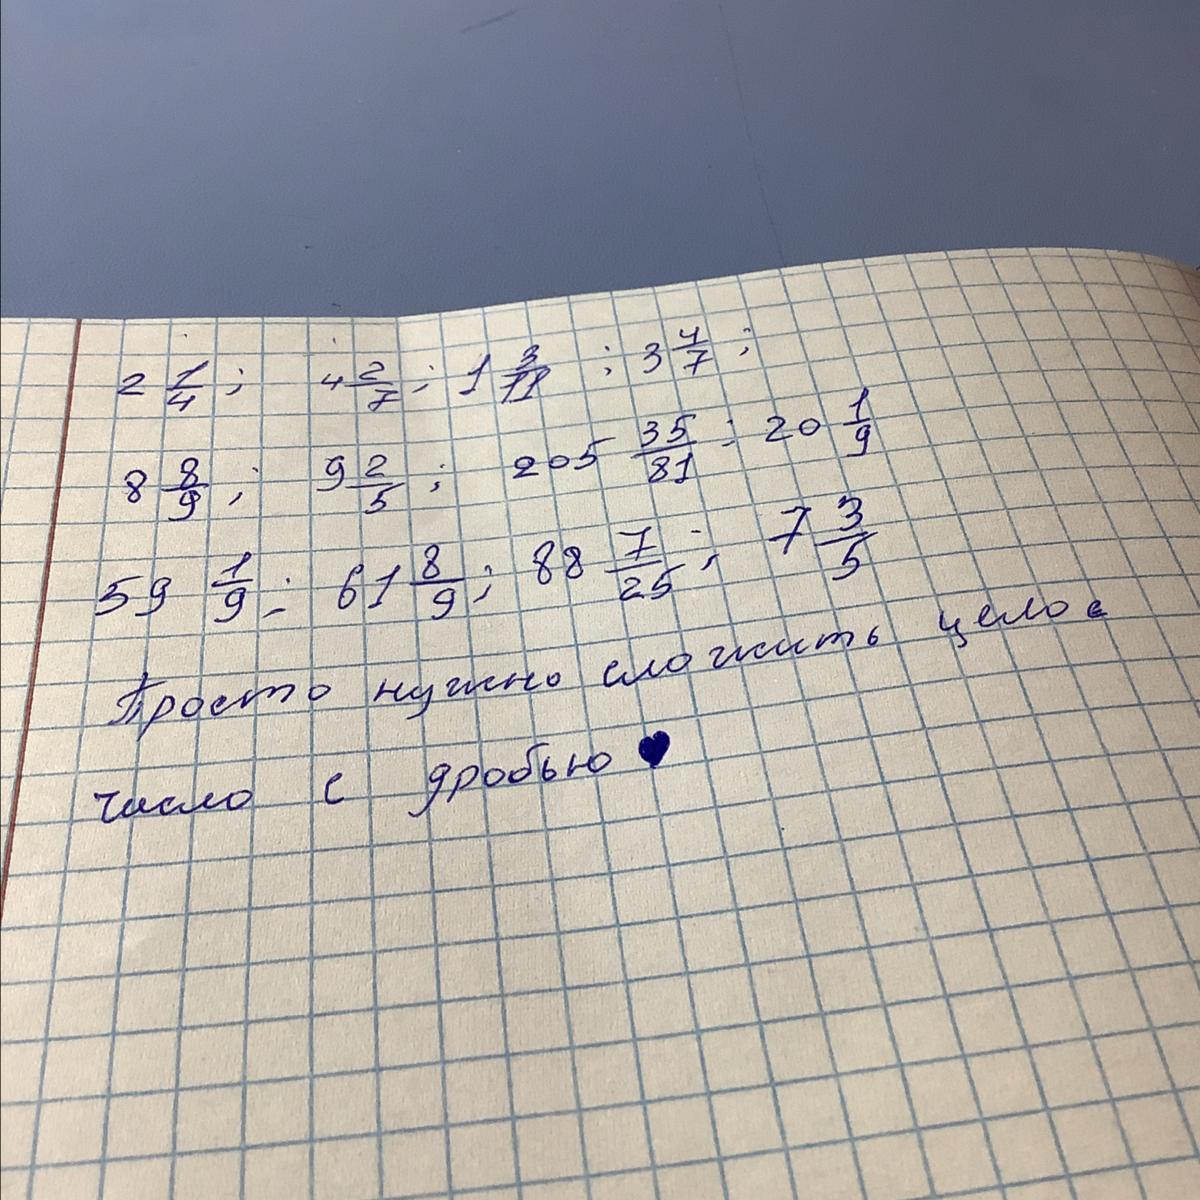 2 1/4; 4 2/7; 1 3/11; 3 4/7;
8 8/9; 9 2/5; 205 35/81; 20 1/9
59 1/9; 61 8/9; 88 7/25; 7 3/5
Просто нужно сложить целое
число с дробью♥